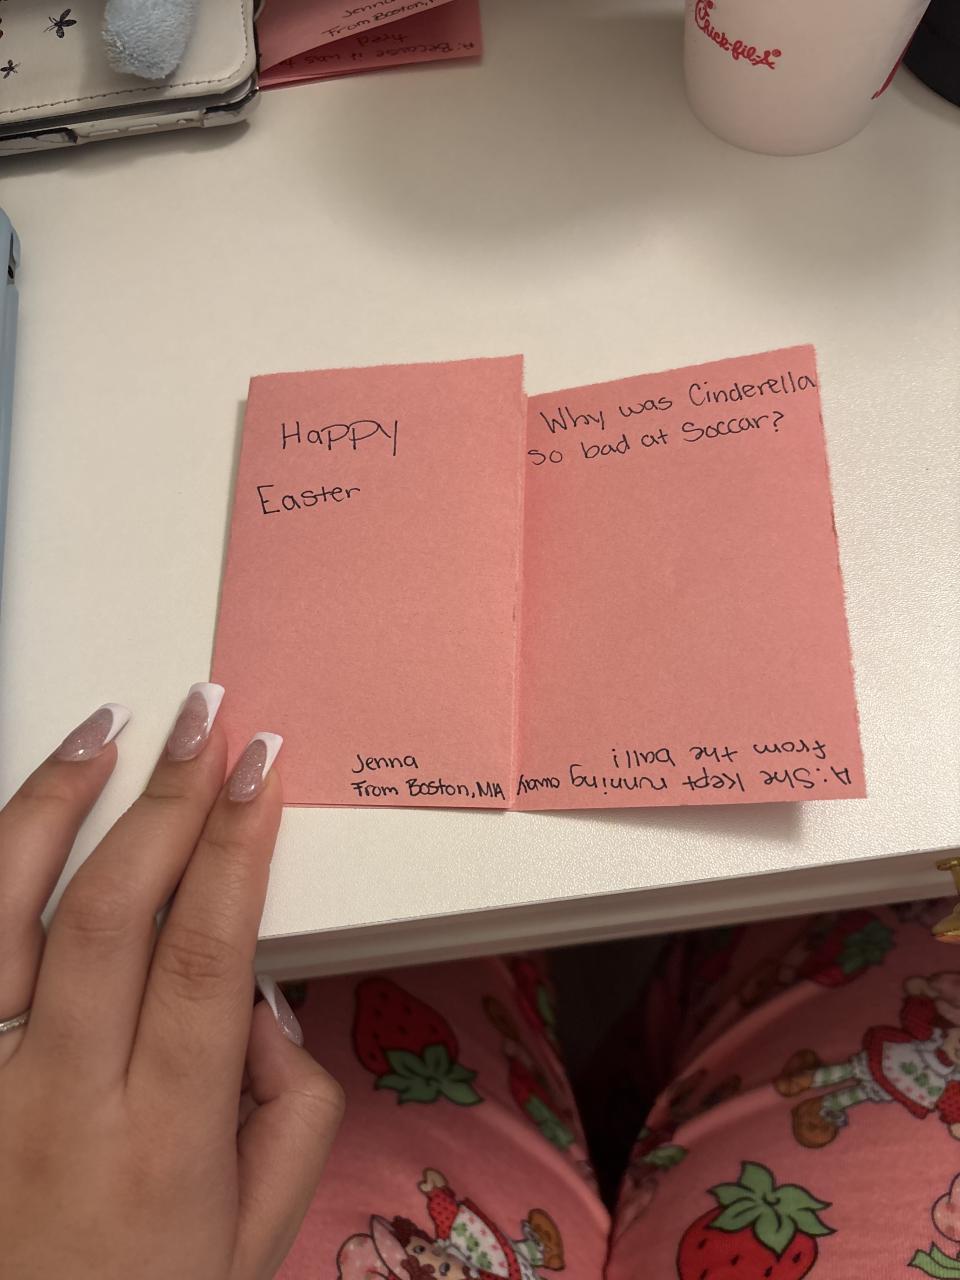 Jenna
From Boston,
A: Because it was
tired
Chick-fil-A
Happy
Easter
Jenna
From Boston, MA
Why was Cinderella
so bad at Soccar?
A: She kept running away
from the ball!